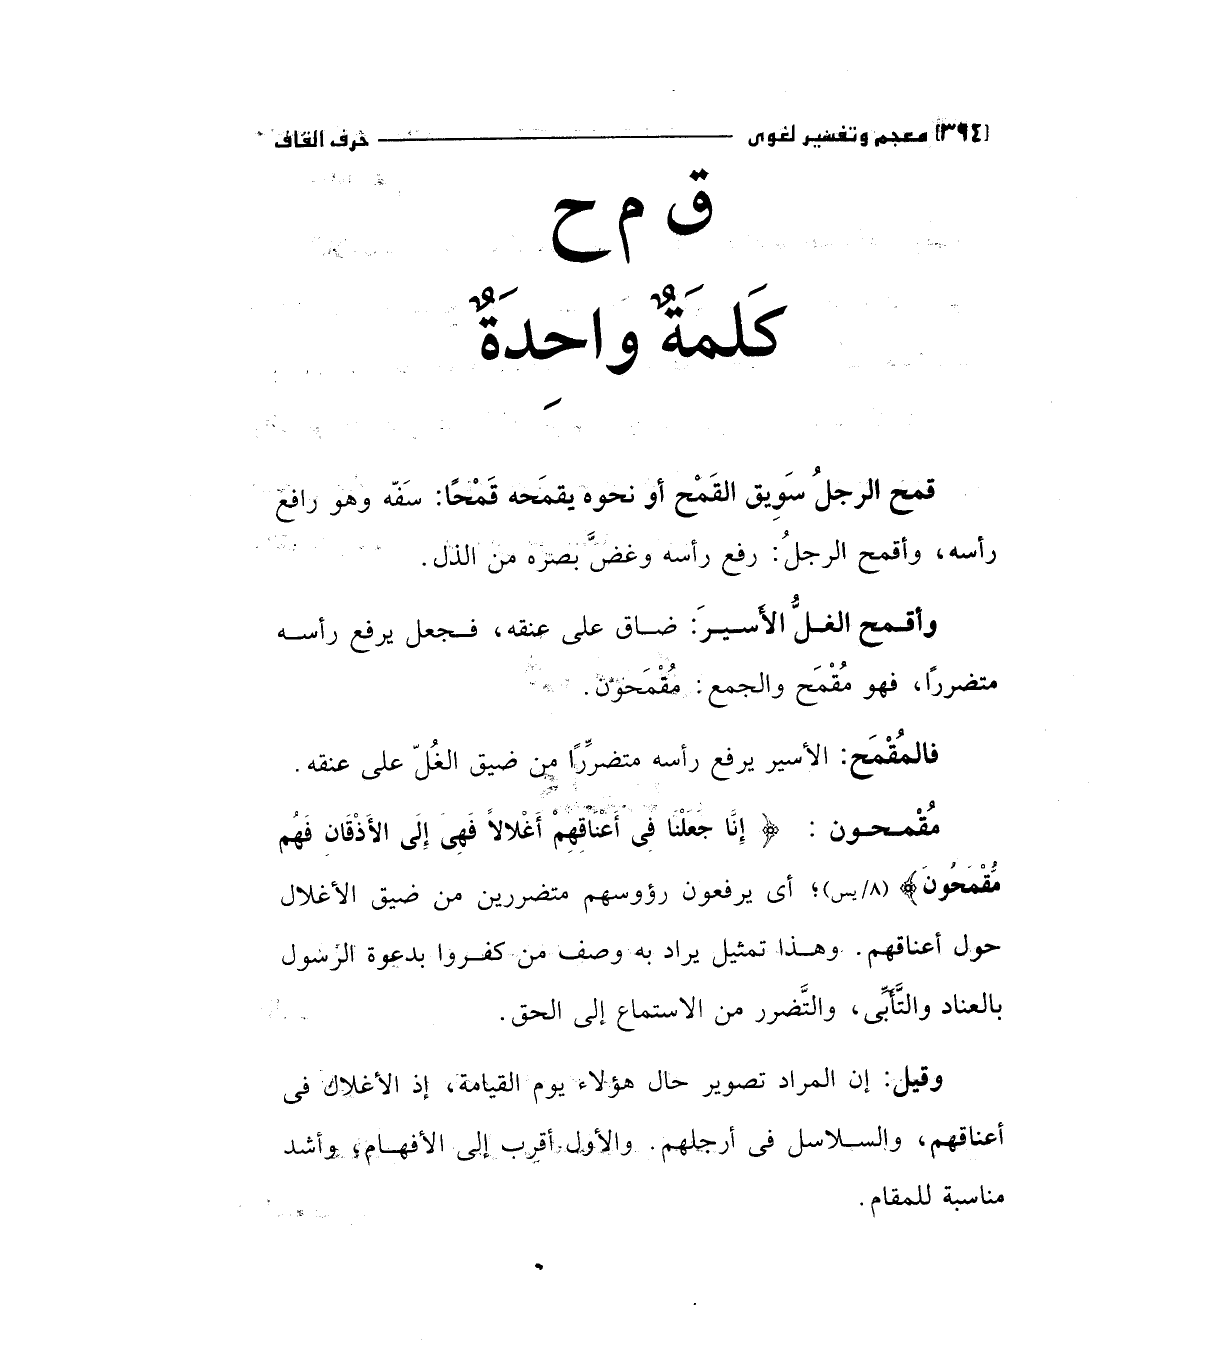 [٣٩٤] معجم وتفسير لغوى حرف القاف
ق م ح
كَلمَةٌ وَاحِدَةٌ
قمح الرجلُ سَوِيق القَمْح أو نحوه يقمَحه قَمْحًا: سَفّه وهو رافع
رأسه، وأقمح الرجلُ: رفع رأسه وغضَّ بصره من الذل.
وأقـمح الغـلُّ الأَسـيـرَ: ضـاق على عنقه، فـجعل يرفع رأسـه
متضررًا، فهو مُقْمَح والجمع: مُقْمَحون.
فالمُقْمَح: الأسير يرفع رأسه متضرِّرًا من ضيق الغُلّ على عنقه.
مُقْمـحـون : ﴿ إِنَّا جَعَلْنَا فِى أَعْنَاقِهِمْ أَغْلالاً فَهِىَ إِلَى الأَذْقَانِ فَهُم
مُّقْمَحُونَ﴾ (٨/ يس)؛ أى يرفعون رؤوسهم متضررين من ضيق الأغلال
حول أعناقهم. وهـذا تمثيل يراد به وصف من كفـروا بدعوة الرسول
بالعناد والتَّأَبِّى، والتَّضرر من الاستماع إلى الحق.
وقيل: إن المراد تصوير حال هؤلاء يوم القيامة، إذ الأغلال فى
أعناقهم، والسـلاسل فى أرجلهم. والأول أقرب إلى الأفهـام، وأشد
مناسبة للمقام.